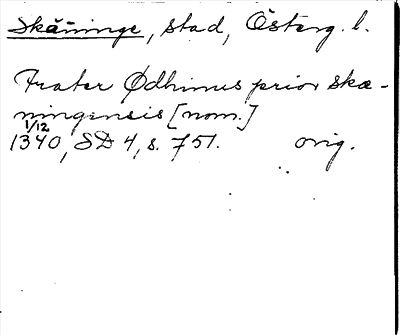 Skäninge, stad, Österg. l.
Frater Ødhinus prior skæ-
ningensis [nom.]
1/12
1340, SD 4, s. 751. orig.